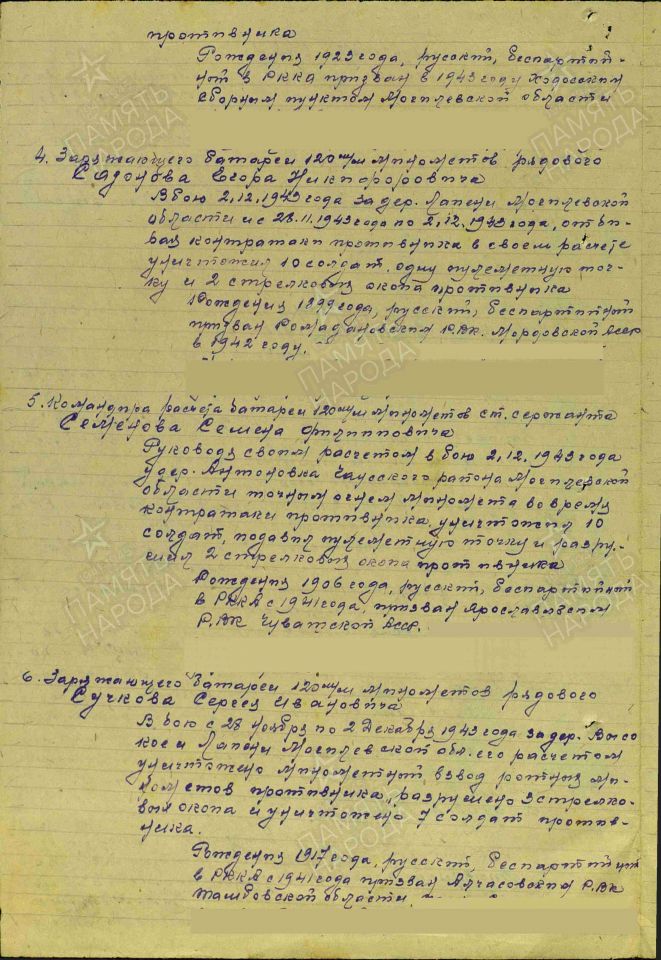 противника
Рождения 1923 года, русский, беспартий-
ный в РККА призван в 1943 году
сборным пунктом Могилевской области
4. Заряжающего батареи 120 мм минометов рядового
Садонова Егора Никифоровича
В бою 2.12.1943 года за дер. Лапени Могилевской
области и с 28.11.1943 года по 2.12.1943 года, отби-
вая контратаки противника в своем расчете
уничтожил 10 солдат, одну пулеметную точ-
ку и 2 стрелковых окопа противника
Рождения 1899 года, русский, беспартийный
призван Ромодановским РВК. Мордовской АССР
в 1942 году.
5. Командира расчета батареи 120 мм минометов ст. сержанта
Семенова Семена Филипповича
Руководя своим расчетом в бою 2.12.1943 года
у дер. Антоновка Чаусского района Могилевской
области точным огнем миномета во время
контратаки противника, уничтожил 10
солдат, подавил пулеметную точку и разру-
шил 2 стрелковых окопа противника
Рождения 1906 года, русский, беспартийный
в РККА с 1941 года, призван
РВК Чуватской АССР.
6. Заряжающего батареи 120 мм минометов рядового
Сучкова Сергея Ивановича
В бою с 28 ноября по 2 декабря 1943 года за дер. Высо
кое и Лапени Могилевской обл. его расчетом
уничтожено минометный взвод ротных ми-
нометов противника, разрушено 3 стрелко-
вых окопа и уничтожено 7 солдат против-
ника.
Рождения 1917 года, русский, беспартийный
в РККА с 1941 года призван РВК
Тамбовской области.
ПАМЯТЬ
НАРОДА
ПАМЯТЬ
НАРОДА
ПАМЯТЬ
НАРОДА
ПАМЯТЬ
НАРОДА